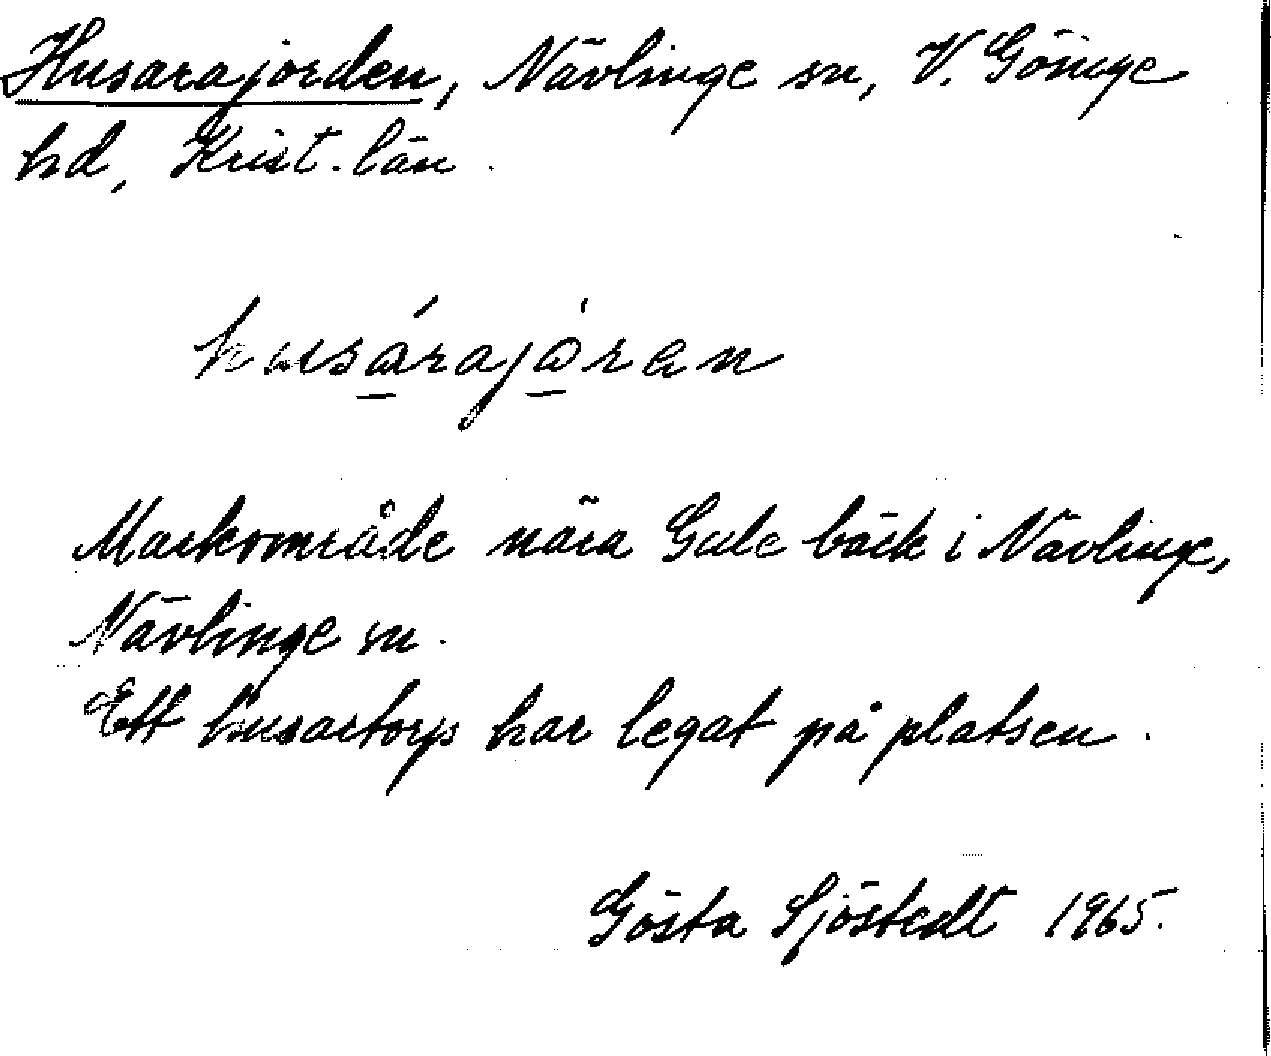 Husarajorden, Nävlinge sn, V. Göinge
hd, Krist. län.
husárajǫ́ren
Markområde nära Gule bäck i Nävlinge,
Nävlinge sn.
Ett husartorp har legat på platsen.
Gösta Sjöstedt 1965.